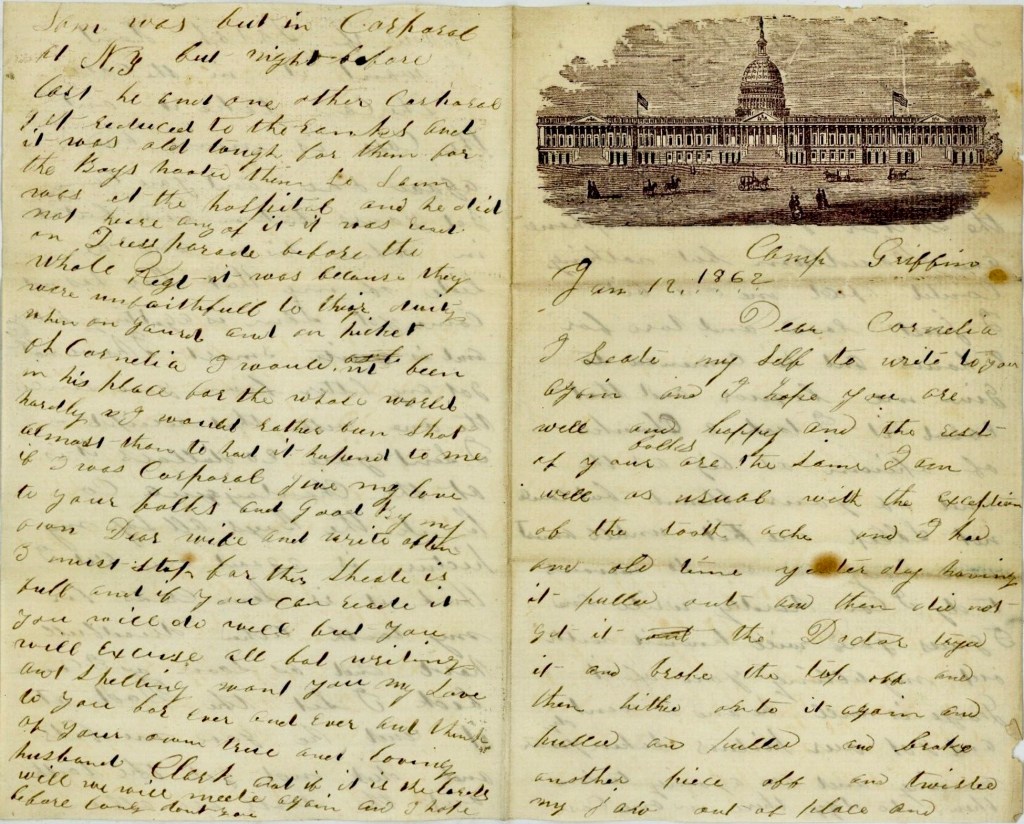 Camp Griffin
Jan 12, 1862
Dear Cornelia
I Seate my Self to write to you
again and I hope you are
well and happy and the rest
of your folks are the same I am
well as usual with the exception
of the tooth ache and I had
and old time yesterday having
it pulled out and then did not
got it out the Doctor
it and broke the top off and
then hitche onto it again and
pulled an pulled and brake
another piece off an twisted
my jaw out of place and
Sam was but in Corporal
at N.Y but night before
last he and one other Corporal
reduced to the ranks and
it was old tough for them for
the Boys hooted them
was at the hospital and he did
not heare any of it it was read
on Dress parade before the
whole Regt it was because they
were unfaithfull to their duty
when on gaurd and on picket
of Cornelia I would not been
in his place for the whole world
hardly I would rather bin Shot
almost than to had it hapend to me
if I was Corporal give my love
to your folks and good by my
own Dear wife and write often
I must stop for this Sheate is
full and if you can reade it
you will do well but you
will excuse all bad writing
and Spelling wont you my Love
to you for ever and ever and think
of your own true and loving
husband Clark and if it is the Lords
will we will meete again and I hope
before long dont you